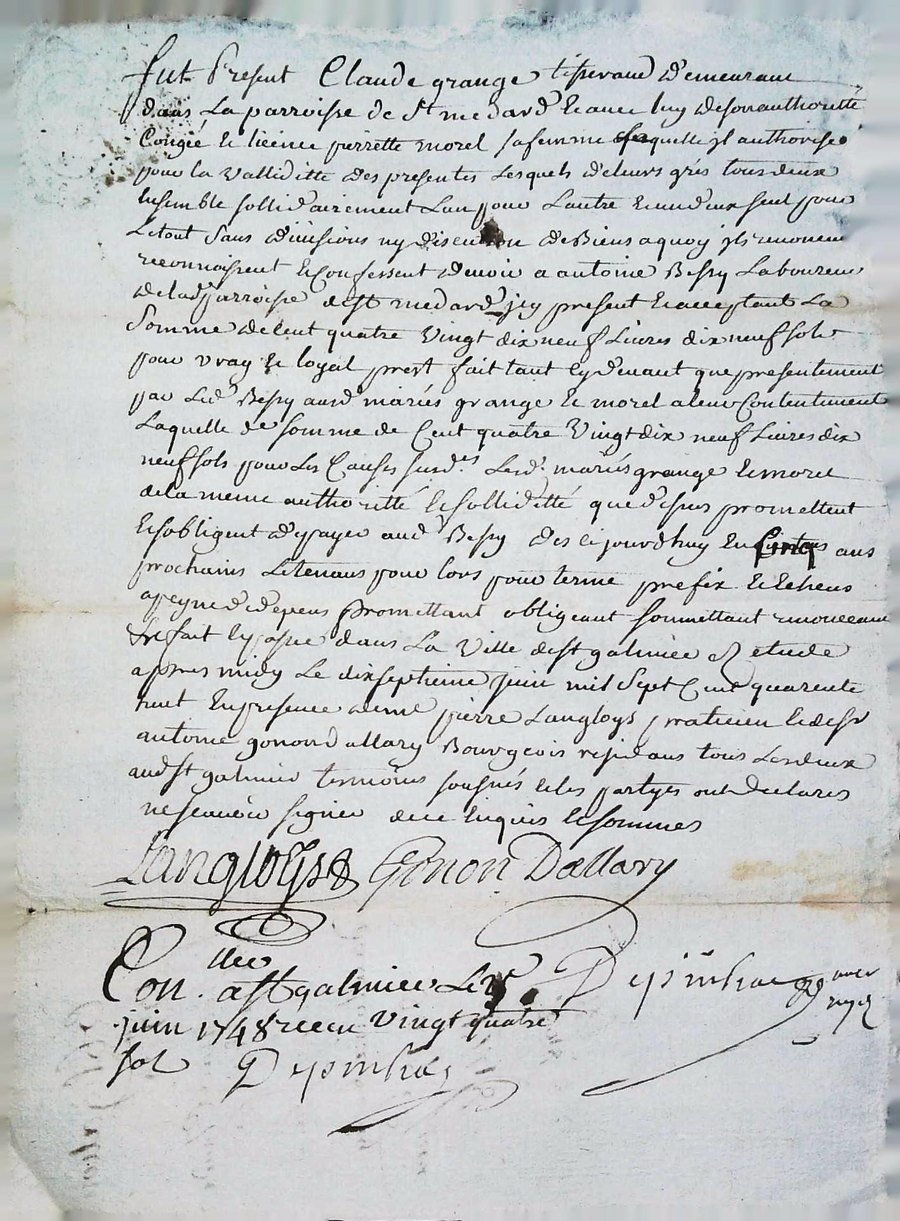 fut Present Claude grange tisserand demeurant
dans La parroisse de St medard Et avec luy de son authoritté
Congée Et licence pierrette morel sa femme laquelle jl authorise
pour la Valliditté des presentes Lesquels de leurs grés tous deux
Ensemble sollidairement Lun pour Lautre Et un deux seul pour
Le tout Sans divisions ny discution de Biens a quoy jls renoncent
reconnoissent Et Confessent devoir a antoine Bessy Laboureur
de lad parroisse de St medard jcy present Et acceptant La
Somme de Cent quatre Vingt dix neuf Livres dix neuf sols
pour vray Et loyal prest fait tant cy devant que presentement
par Led Bessy ausd mariés grange Et morel a leur Contentement
Laquelle de somme de Cent quatre Vingt dix neuf Livres dix
neuf sols pour Les Causes susd.es Lesd. mariés grange Et morel
de la meme authoritté Et solliditté que dessus promettent
Et sobligent de payer aud Bessy des ce jourdhuy En Cinq ans
prochains Le tenant pour lors pour terme prefix Et Echeus
a peyne de depens promettant obligeant soumettant renonceant
fait Et passé dans La Ville de St galmier Etude
apres midy Le dix septieme juin mil Sept Cent quarente
huit En presence de me pierre Langloys praticien Et de sr
antoine gonon dallary Bourgeois residans tous Les deux
aud St galmier temoins sousnés Et les partyes ont declarés
ne scavoir signer de ce Enquis Et sommés
Langloys Gonon Dallary
Con.llée a St galmier Le
Depinhac
juin 1748 receu Vingt quatre
sol Depinhac